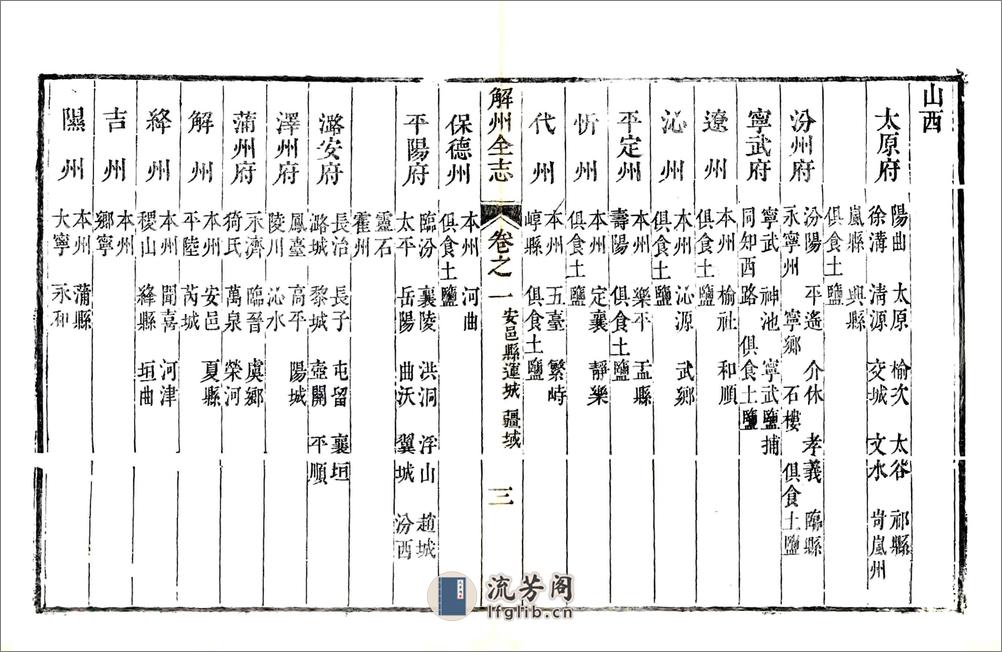 山西
太原府
陽曲 太原 榆次 太谷 祁縣
徐溝 清源 交城 文水 岢嵐州
嵐縣 興縣
俱食土鹽
汾州府
汾陽 平遙 介休 孝義 臨縣
永寧州 寧鄉 石樓 俱食土鹽
寧武府
寧武 神池 寧武鹽捕
同知西路 俱食土鹽
遼州
本州 榆社 和順
俱食土鹽
沁州
本州 沁源 武鄉
俱食土鹽
平定州
本州 樂平 盂縣
壽陽 俱食土鹽
忻州
本州 定襄 靜樂
俱食土鹽
代州
本州 五臺 繁峙
崞縣 俱食土鹽
解州全志 卷之一 安邑縣運城 疆域 三
保德州
本州 河曲
俱食土鹽
平陽府
臨汾 襄陵 洪洞 浮山 趙城
太平 岳陽 曲沃 翼城 汾西
靈石
霍州
潞安府
長治 長子 屯留 襄垣
潞城 黎城 壺關 平順
澤州府
鳳臺 高平 陽城
陵川 沁水
蒲州府
永濟 臨晉 虞鄉
猗氏 萬泉 榮河
解州
本州 安邑 夏縣
平陸 芮城
絳州
本州 聞喜 河津
稷山 絳縣 垣曲
吉州
本州
鄉寧
隰州
本州 蒲縣
大寧 永和
流芳阁
lfglib.cn